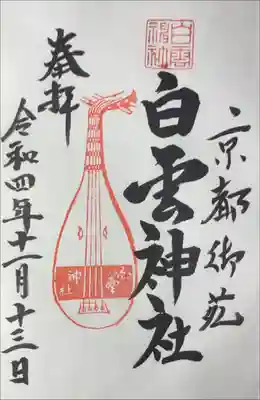 京都御苑
白雲神社
奉拝
令和四年十一月十三日
白雲
神社